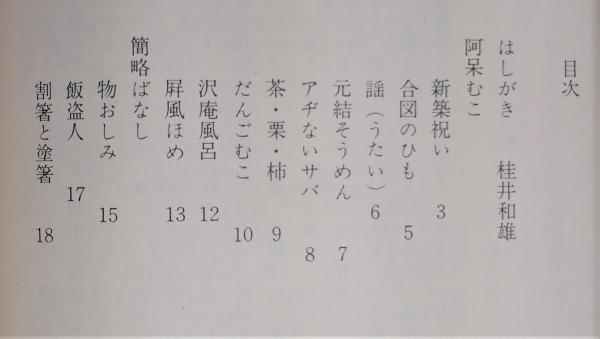 目次
はしがき 桂井和雄
阿呆むこ
新築祝い 3
合図のひも 5
謡（うたい） 6
元結そうめん 7
アヂないサバ 8
茶・栗・柿 9
だんごむこ 10
沢庵風呂 12
屛風ほめ 13
簡略ばなし
物おしみ 15
飯盗人 17
割箸と塗箸 18